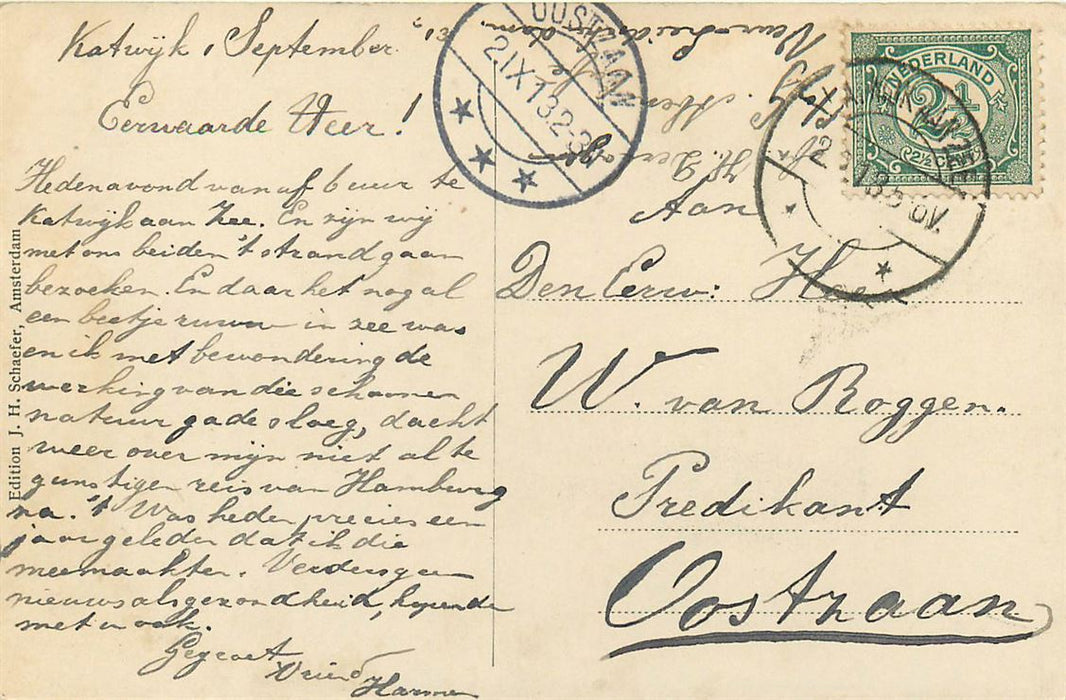 Katwijk 1 September '13
Eerwaarde Heer!
Heden avond vanaf 6 uur te
Katwijk aan Zee. En zijn wij
met ons beiden 't strand gaan
bezoeken. En daar het nog al
een beetje ruw in zee was
en ik met bewondering de
werking van die schoonen
natuur gade sloeg, dacht
weer over mijn niet al te
gunstigen reis van Hamburg
na. 't Was heden precies een
jaar geleden dat ik die
meemaakten. Verders geen
nieuws als gezondheid, hopende
met u ook.
Gegroet
Vriend
Harmen
Edition J. H. Schaefer, Amsterdam
OOSTRAAN
2.IX.13.2-3
NEDERLAND
2½
2½ CENT
Aan
Den Eerw: Heer
W. van Roggen.
Predikant
Oostraan